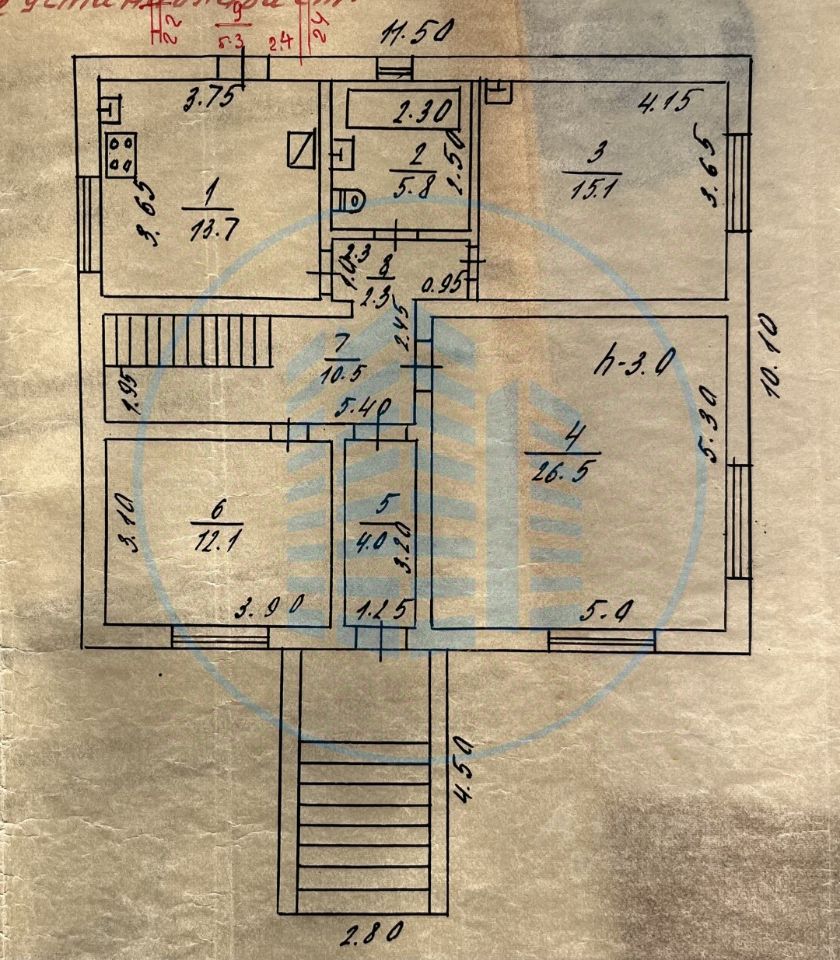 9
5.3
2.4
24
22
11.50
3.75
3.65
1
13.7
2.30
2
5.8
2.50
4.15
3
15.1
3.65
8
2.3
0.95
7
10.5
2.45
1.95
5.40
h-3.0
10.10
4
26.5
5.30
5.0
6
12.1
3.10
3.90
5
4.0
3.20
1.25
4.50
2.80